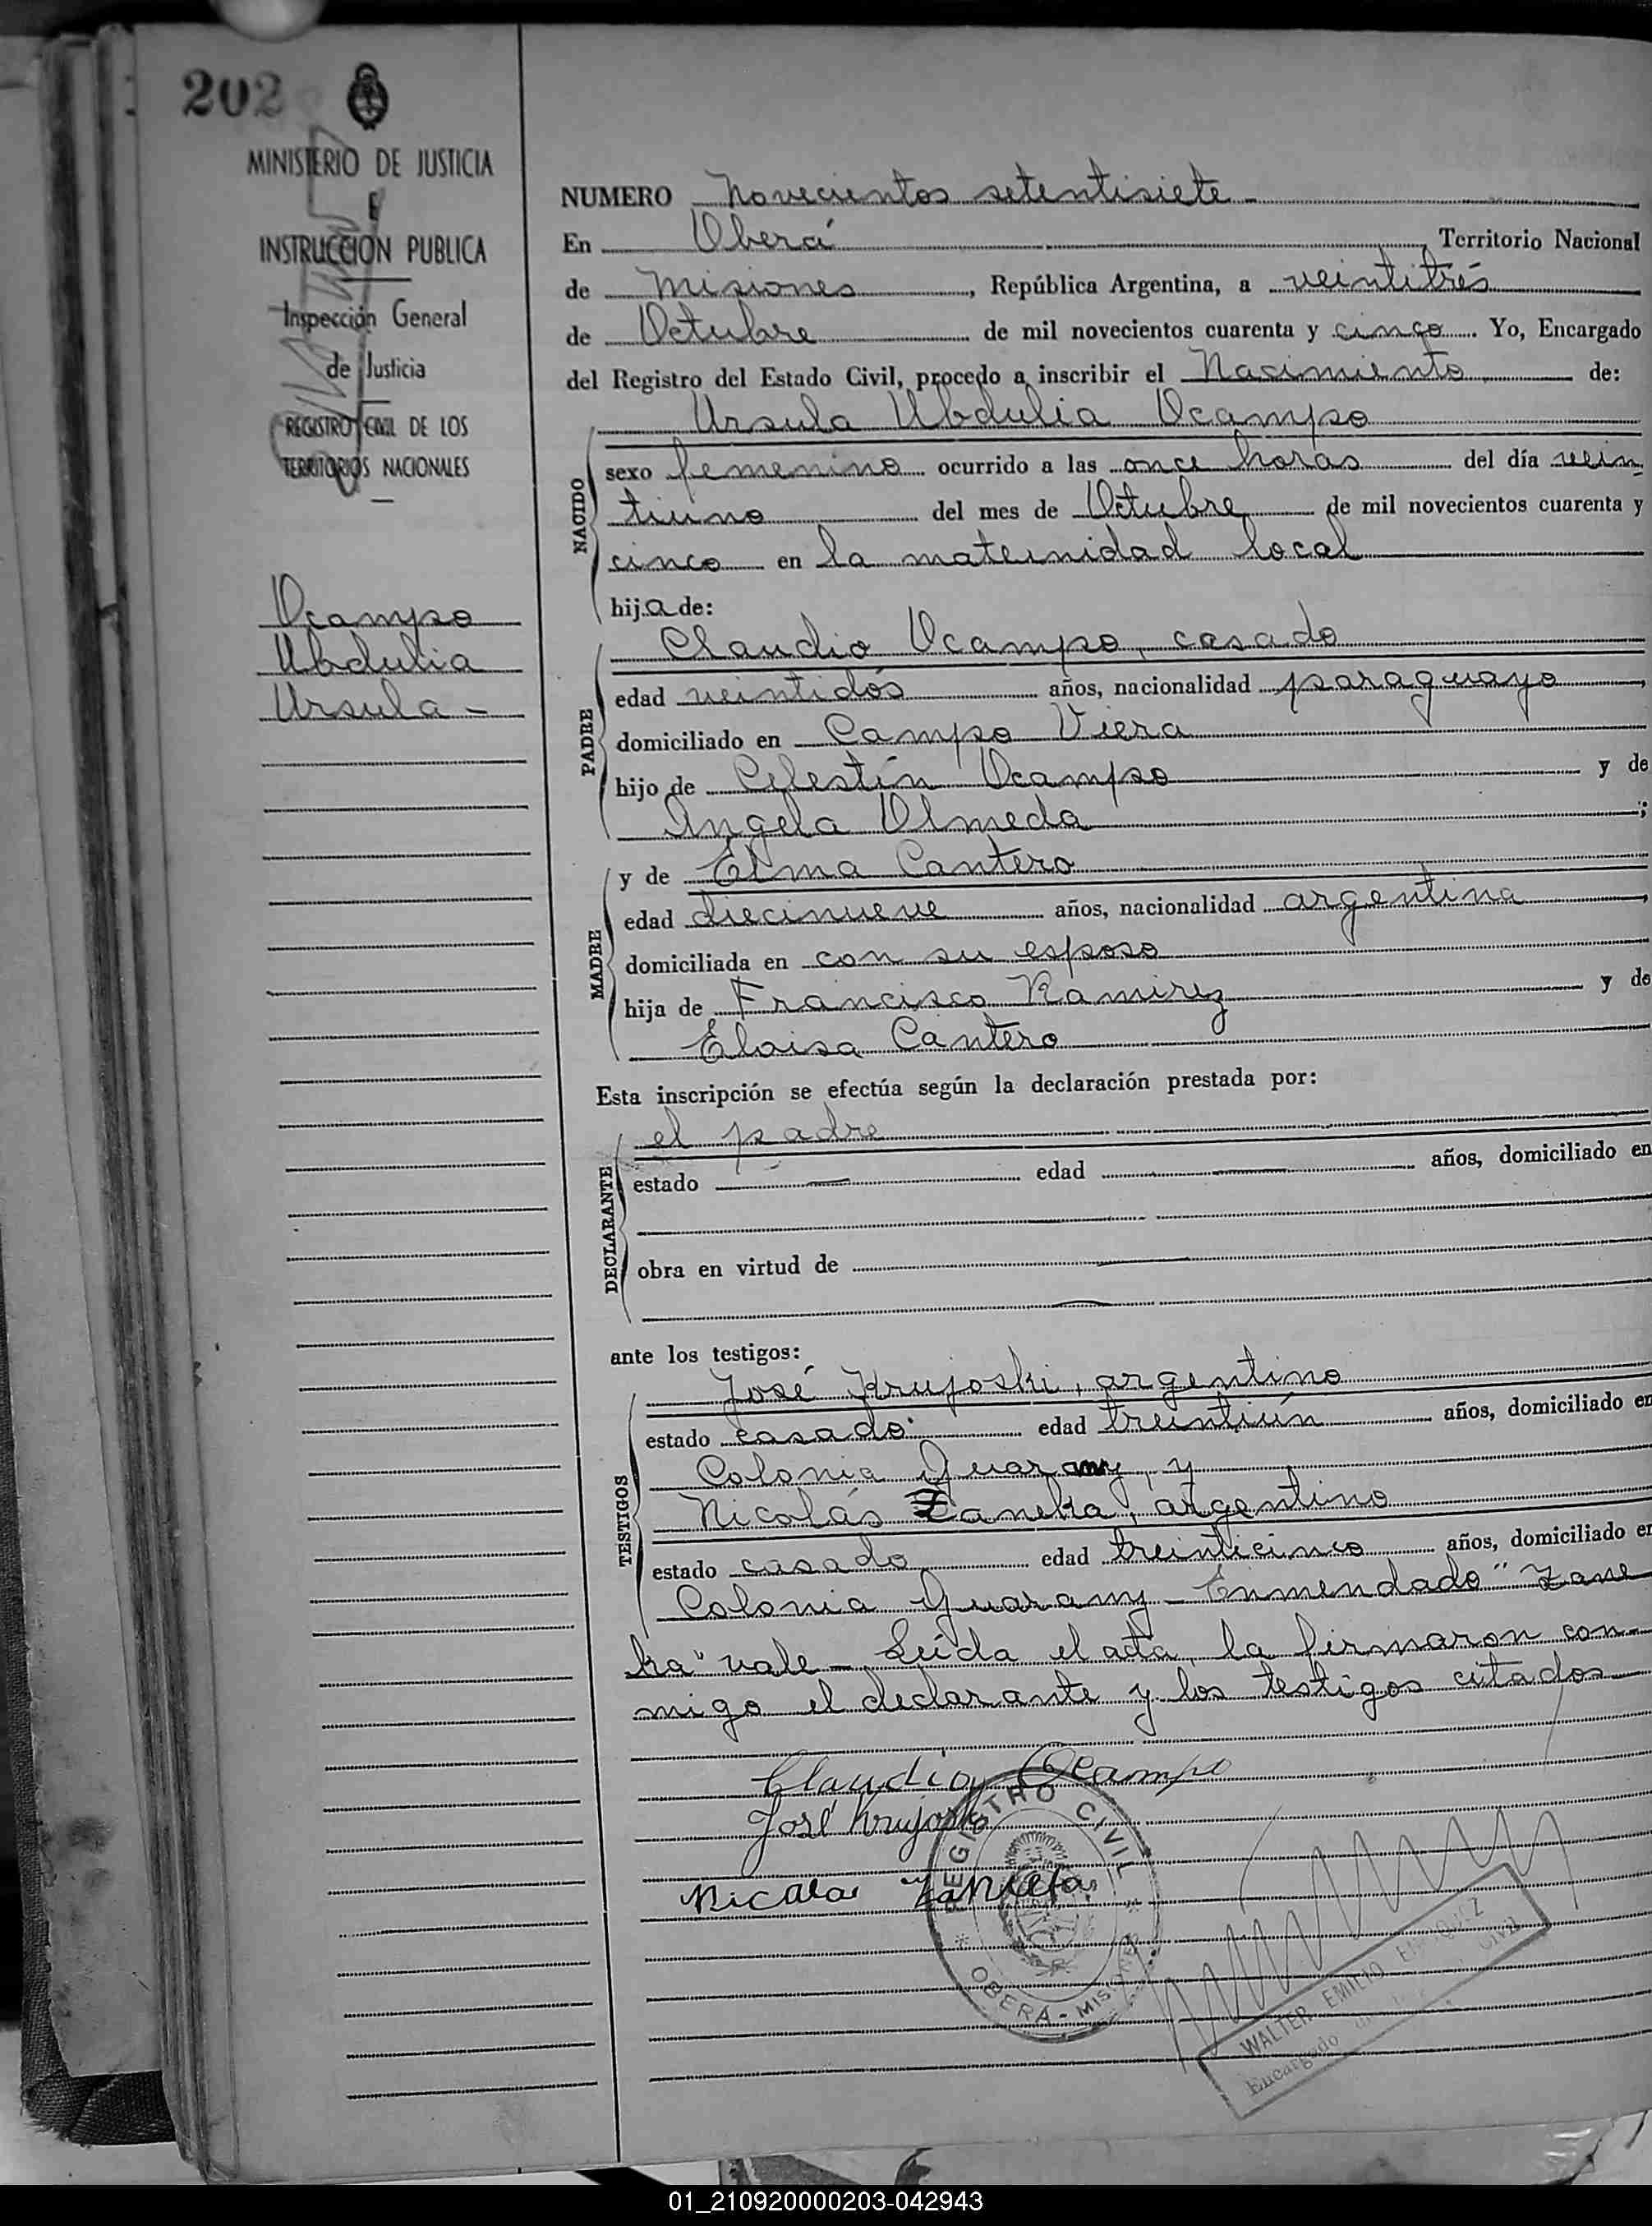 202
MINISTERIO DE JUSTICIA
E
INSTRUCCION PUBLICA
Inspección General
de Justicia
REGISTRO CIVIL DE LOS
TERRITORIOS NACIONALES
Ocampo
Ubdulia
Ursula -
NUMERO Novecientos setentisiete
En Oberá Territorio Nacional
de Misiones, República Argentina, a veintitrés
de Octubre de mil novecientos cuarenta y cinco. Yo, Encargado
del Registro del Estado Civil, procedo a inscribir el Nacimiento de:
Ursula Ubdulia Ocampo
NACIDO
sexo femenino ocurrido a las once horas del día vein
tiuno del mes de Octubre de mil novecientos cuarenta y
cinco en la maternidad local
hija de:
PADRE
Claudio Ocampo, casado
edad veintidós años, nacionalidad paraguayo,
domiciliado en Campo Viera
hijo de Celestín Ocampo y de
Angela Olmeda ;
MADRE
y de Elma Cantero
edad diecinueve años, nacionalidad argentina,
domiciliada en con su esposo
hija de Francisco Ramirez y de
Eloisa Cantero
Esta inscripción se efectúa según la declaración prestada por:
DECLARANTE
el padre
estado — edad — años, domiciliado en
obra en virtud de —
ante los testigos:
TESTIGOS
José Krujoski, argentino
estado casado edad treintiún años, domiciliado en
Colonia Guarany, y
Nicolás Zaneka, argentino
estado casado edad treinticinco años, domiciliado en
Colonia Guarany - Enmendado "Zane
ka" vale - Leída el acta, la firmaron con-
migo el declarante y los testigos citados
Claudio Ocampo
José Krujoski
Nicolas
REGISTRO CIVIL
* OBERÁ - MISIONES *
WALTER EMILIO ENRIQUEZ
Encargado Civil
01_210920000203-042943